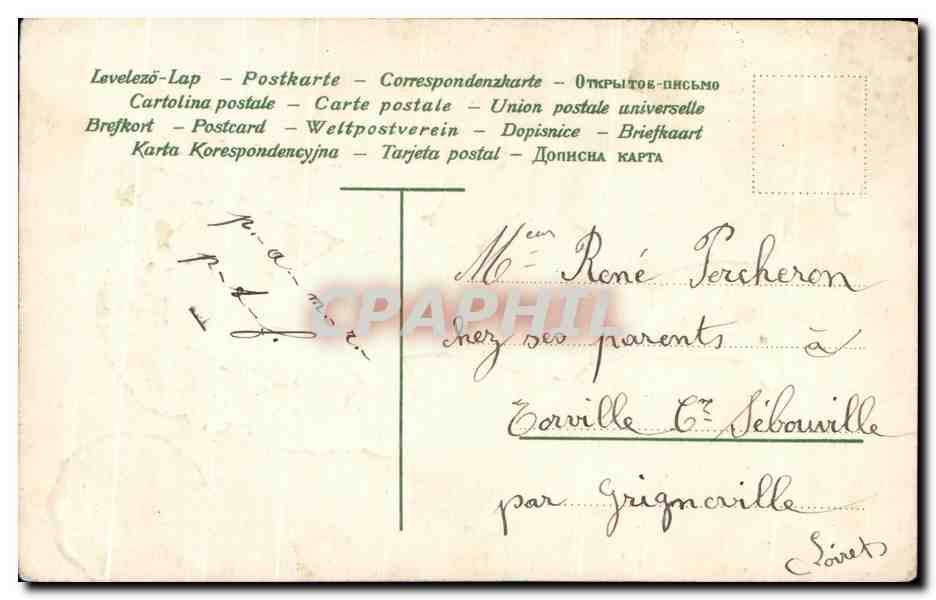 Levelező-Lap – Postkarte – Correspondenzkarte – Открытое-письмо
Cartolina postale – Carte postale – Union postale universelle
Brefkort – Postcard – Weltpostverein – Dopisnice – Briefkaart
Karta Korespondencyjna – Tarjeta postal – Дописна карта
p.-a-m-r.-
p.-t-f.
CPAPHIL
Meur René Percheron
chez ses parents à
Torville Cne Sébouville
par Grigneville
Loiret